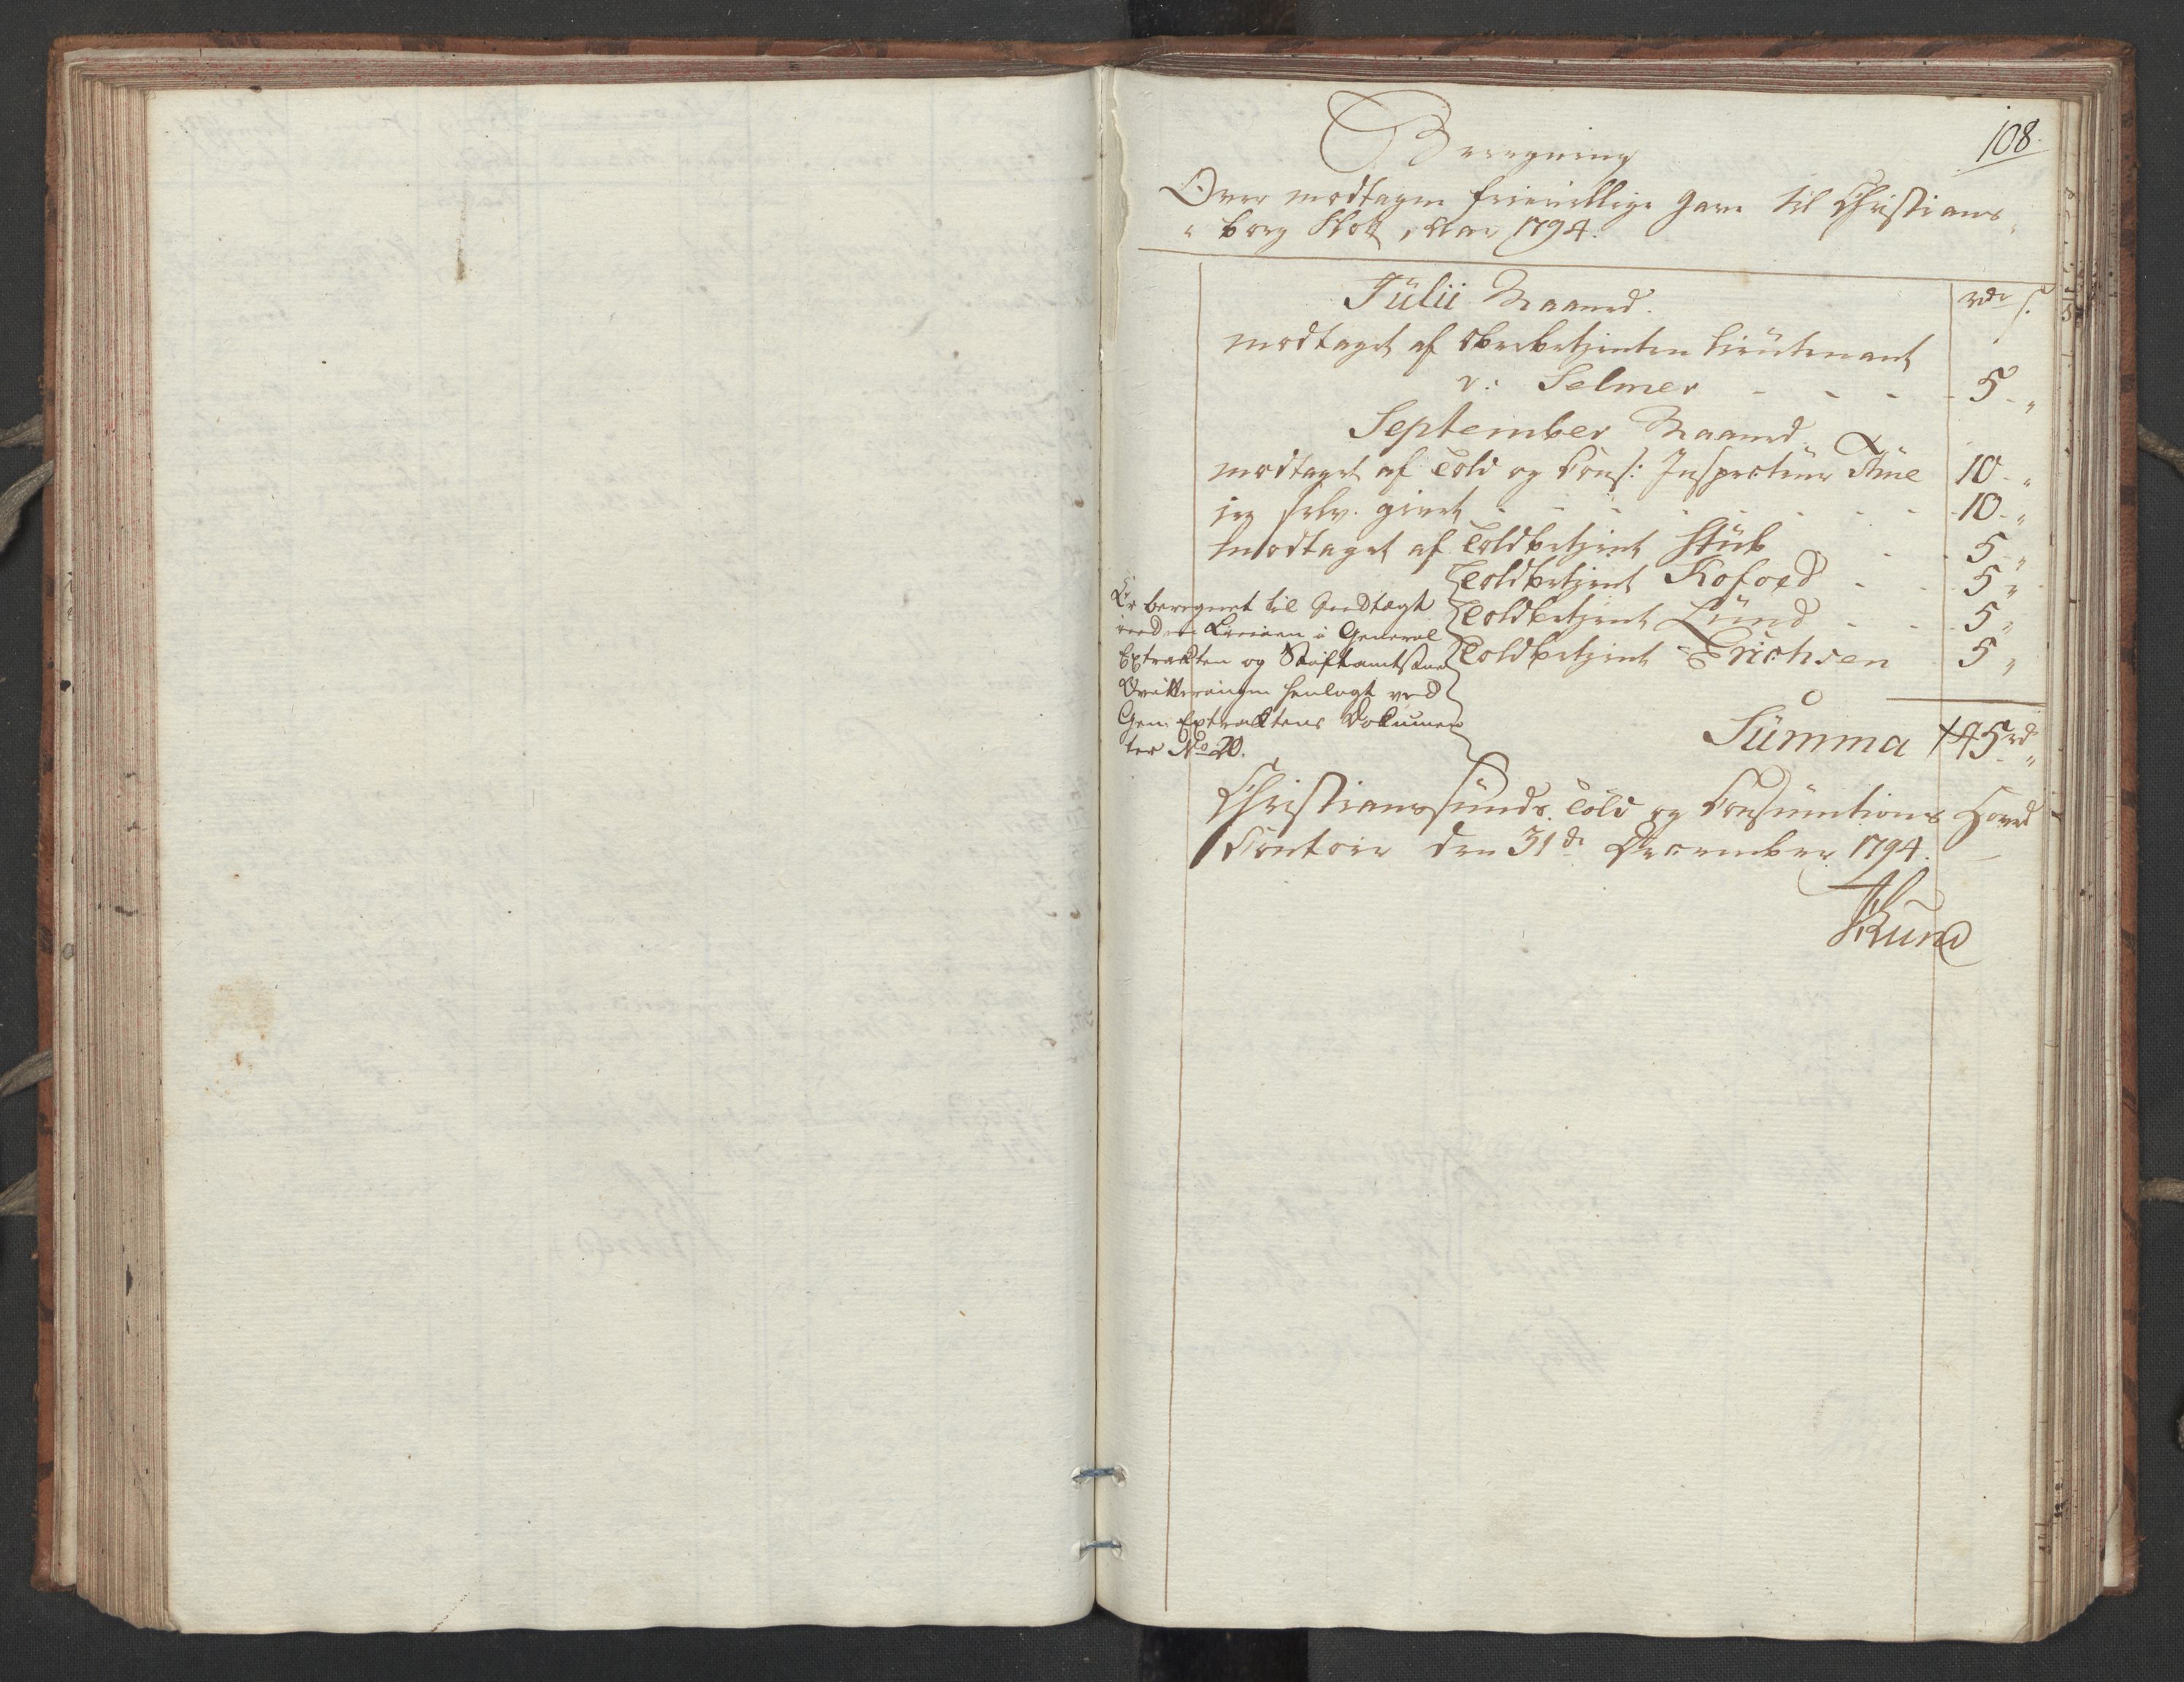 108.
Beregning
Over modtagne frievillige Gave til Christians
borg Slott, Aar 1794.
Julii Maaned. rdr s.
modtaget af Overbetjenten Lieutenant
v: Selmer - - - 5 - „
September Maaned.
modtaget af Told og Cons: Inspecteur Thue 10 - „
jeg selv givet - - - - - - 10 - „
modtaget af Toldbetjent Stub - - 5 - „
Toldbetjent Kofoed - - 5 „
Toldbetjent Lund - - 5 „
Toldbetjent Erichsen 5 „
Er beregnet til Indtægt
under Linien i General
Extrakten og Stiftamtstue
Qvitteringen henlagt ved
Gen: Extraktens Dokumen
ter No 20.
Summa 45 rd „
Christianssunds Told og Consumtions Hoved
Contoir den 31de December 1794.
Lund